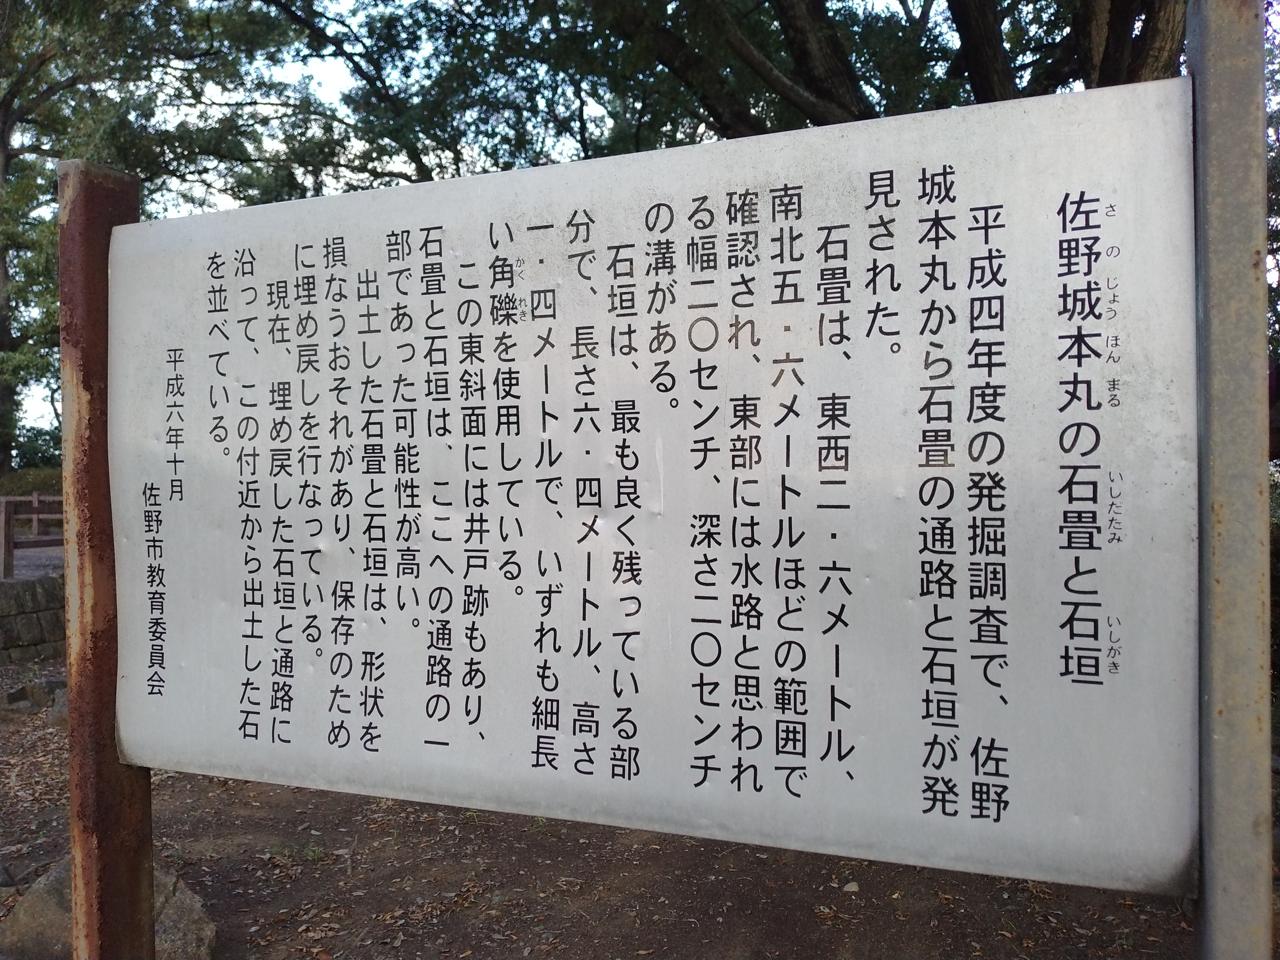 佐野城本丸の石畳と石垣
さのじょうほんまる
いしだたみ
いしがき
平成四年度の発掘調査で、佐野
城本丸から石畳の通路と石垣が発
見された。
石畳は、東西二・六メートル、
南北五・六メートルほどの範囲で
確認され、東部には水路と思われ
る幅二〇センチ、深さ二〇センチ
の溝がある。
石垣は、最も良く残っている部
分で、長さ六・四メートル、高さ
一・四メートルで、いずれも細長
い角礫を使用している。
かくれき
この東斜面には井戸跡もあり、
石畳と石垣は、ここへの通路の一
部であった可能性が高い。
出土した石畳と石垣は、形状を
損なうおそれがあり、保存のため
に埋め戻しを行なっている。
現在、埋め戻した石垣と通路に
沿って、この付近から出土した石
を並べている。
平成六年十月
佐野市教育委員会